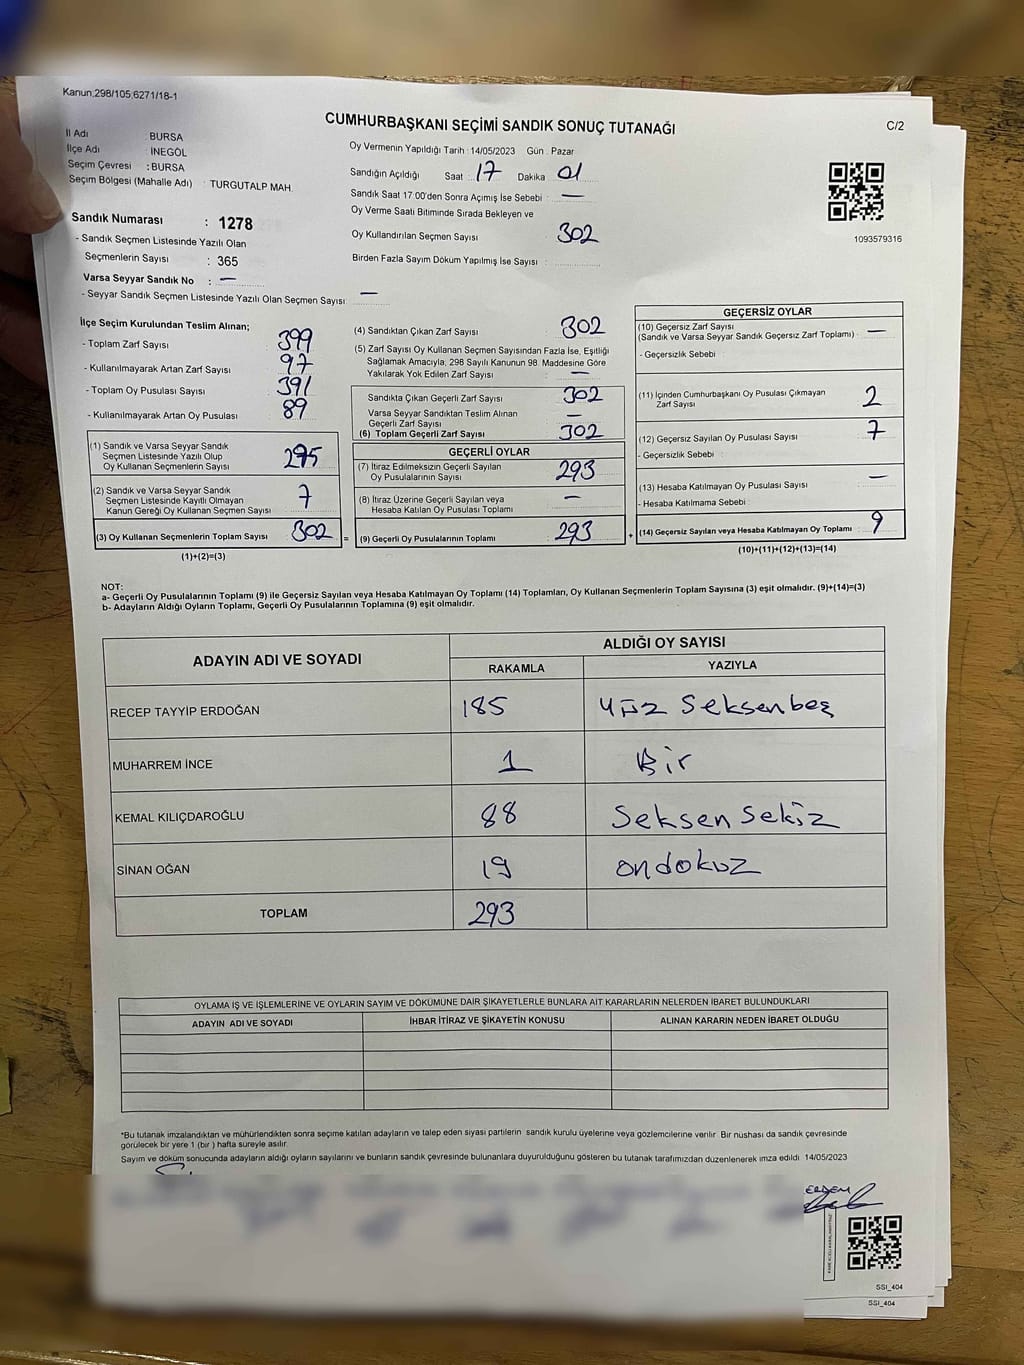 Kanun.298/105,6271/18-1
CUMHURBAŞKANI SEÇİMİ SANDIK SONUÇ TUTANAĞI
C/2
İl Adı : BURSA
İlçe Adı : İNEGÖL
Seçim Çevresi : BURSA
Seçim Bölgesi (Mahalle Adı) : TURGUTALP MAH.
Sandık Numarası : 1278
- Sandık Seçmen Listesinde Yazılı Olan
Seçmenlerin Sayısı : 365
Varsa Seyyar Sandık No : —
- Seyyar Sandık Seçmen Listesinde Yazılı Olan Seçmen Sayısı: —
Oy Vermenin Yapıldığı Tarih : 14/05/2023 Gün : Pazar
Sandığın Açıldığı Saat : 17 Dakika 01
Sandık Saat 17:00'den Sonra Açımış İse Sebebi : —
Oy Verme Saati Bitiminde Sırada Bekleyen ve
Oy Kullandırılan Seçmen Sayısı : 302
Birden Fazla Sayım Döküm Yapılmış İse Sayısı :
1093579316
İlçe Seçim Kurulundan Teslim Alınan;
- Toplam Zarf Sayısı : 399
- Kullanılmayarak Artan Zarf Sayısı : 97
- Toplam Oy Pusulası Sayısı : 391
- Kullanılmayarak Artan Oy Pusulası : 89
(1) Sandık ve Varsa Seyyar Sandık
Seçmen Listesinde Yazılı Olup
Oy Kullanan Seçmenlerin Sayısı : 295
(2) Sandık ve Varsa Seyyar Sandık
Seçmen Listesinde Kayıtlı Olmayan
Kanun Gereği Oy Kullanan Seçmen Sayısı : 7
(3) Oy Kullanan Seçmenlerin Toplam Sayısı : 302 =
(1)+(2)=(3)
(4) Sandıktan Çıkan Zarf Sayısı : 302
(5) Zarf Sayısı Oy Kullanan Seçmen Sayısından Fazla İse, Eşitliği
Sağlamak Amacıyla; 298 Sayılı Kanunun 98. Maddesine Göre
Yakılarak Yok Edilen Zarf Sayısı : —
Sandıkta Çıkan Geçerli Zarf Sayısı : 302
Varsa Seyyar Sandıktan Teslim Alınan
Geçerli Zarf Sayısı : —
(6) Toplam Geçerli Zarf Sayısı : 302
GEÇERLİ OYLAR
(7) İtiraz Edilmeksizin Geçerli Sayılan
Oy Pusulalarının Sayısı : 293
(8) İtiraz Üzerine Geçerli Sayılan veya
Hesaba Katılan Oy Pusulası Toplamı : —
(9) Geçerli Oy Pusulalarının Toplamı : 293 +
GEÇERSİZ OYLAR
(10) Geçersiz Zarf Sayısı
(Sandık ve Varsa Seyyar Sandık Geçersiz Zarf Toplamı) : —
- Geçersizlik Sebebi :
(11) İçinden Cumhurbaşkanı Oy Pusulası Çıkmayan
Zarf Sayısı : 2
(12) Geçersiz Sayılan Oy Pusulası Sayısı : 7
- Geçersizlik Sebebi :
(13) Hesaba Katılmayan Oy Pusulası Sayısı : —
- Hesaba Katılmama Sebebi :
(14) Geçersiz Sayılan veya Hesaba Katılmayan Oy Toplamı : 9
(10)+(11)+(12)+(13)=(14)
NOT:
a- Geçerli Oy Pusulalarının Toplamı (9) ile Geçersiz Sayılan veya Hesaba Katılmayan Oy Toplamı (14) Toplamları, Oy Kullanan Seçmenlerin Toplam Sayısına (3) eşit olmalıdır. (9)+(14)=(3)
b- Adayların Aldığı Oyların Toplamı, Geçerli Oy Pusulalarının Toplamına (9) eşit olmalıdır.
ADAYIN ADI VE SOYADI ALDIĞI OY SAYISI
RAKAMLA YAZIYLA
RECEP TAYYIP ERDOĞAN 185 yüz seksenbeş
MUHARREM İNCE 1 Bir
KEMAL KILIÇDAROĞLU 88 Seksen sekiz
SİNAN OĞAN 19 ondokuz
TOPLAM 293
OYLAMA İŞ VE İŞLEMLERİNE VE OYLARIN SAYIM VE DÖKÜMÜNE DAİR ŞİKAYETLERLE BUNLARA AİT KARARLARIN NELERDEN İBARET BULUNDUKLARI
ADAYIN ADI VE SOYADI İHBAR İTİRAZ VE ŞİKAYETİN KONUSU ALINAN KARARIN NEDEN İBARET OLDUĞU
*Bu tutanak imzalandıktan ve mühürlendikten sonra seçime katılan adayların ve talep eden siyasi partilerin sandık kurulu üyelerine veya gözlemcilerine verilir. Bir nüshası da sandık çevresinde
görülecek bir yere 1 (bir ) hafta süreyle asılır.
Sayım ve döküm sonucunda adayların aldığı oyların sayılarını ve bunların sandık çevresinde bulunanlara duyurulduğunu gösteren bu tutanak tarafımızdan düzenlenerek imza edildi. 14/05/2023
ERDEM
SSI_404
SSI_404